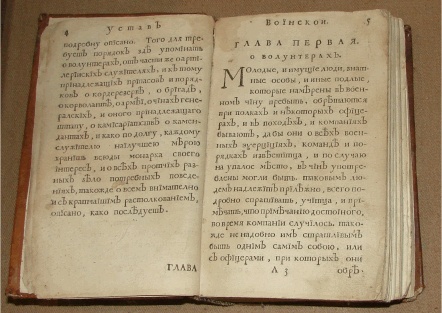 4
Уставъ
подробну опiсано. Того для тре-
буетъ порядокъ здѣ упомянуть
о волунтерахъ, отъчасти же о арти-
лерiйскiхъ служiтеляхъ, и къ тому
принадлежащiхъ прiпасовъ и порядъ-
ковъ о корперезервѣ, о брiгадѣ,
о корволантѣ, о армеi, о чiнахъ гене-
ралскiхъ, и оного принадлежащаго
штапу, о камiсарiятствѣ, о камен-
дантахъ, и како по долгу, каждому
служiтелю наилучшею мѣрою
хранить всюды монарха своего
iнтересъ, и о всѣхъ протчiхъ раз-
ныхъ ѕѣло потребныхъ поведе-
нiяхъ, такожде о всемъ внимателно
и съ кратчайшiмъ растолкованiемъ,
опiсано, како послѣдуетъ.
ГЛАВА
Воiнской.
5
ГЛАВА ПЕРВАЯ.
о волунтерахъ.
Молодые, и имущiе люди, знат-
ные особы, и иные подлые,
которые намѣрены въ воен-
номъ чiну пребыть, обрѣтаются
при полкахъ и нѣкоторыхъ офiце-
рахъ, и въ походѣхъ, и командахъ
бываютъ, дабы они о всѣхъ воен-
ныхъ эѯерцицiяхъ, командѣ и по-
рядкахъ извѣстiтца, и по случаю
на упалое мѣсто, въ чiнъ употре-
блены могли быть. таковымъ лю-
демъ надлежiтъ прiлѣжно, всего по-
дробно спрашивать, учiтца, и прi-
мѣчать, что прiмѣчанiю достоiного,
во время компанiи случiлось. також-
де ненадобно имъ страшлiвымъ
быть однiмъ самiмъ собою, или
съ офiцерами, при которыхъ они
А 3
обрѣ-